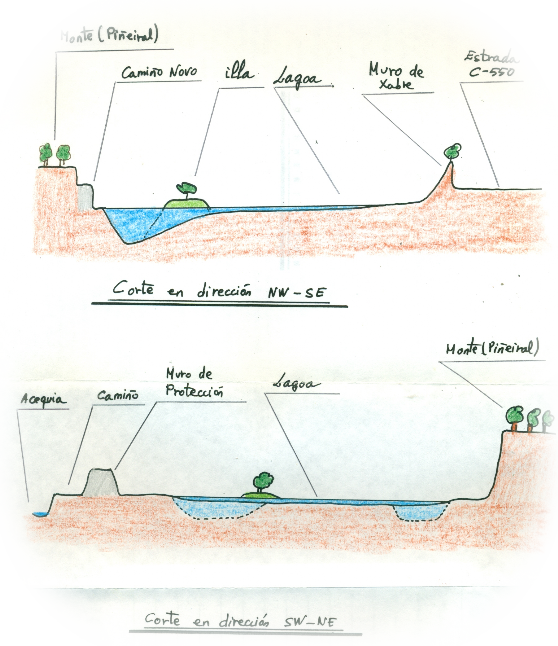 Monte (Piñeiral)
Camiño Novo
illa
Lagoa
Muro de
Xabre
Estrada
C-550
Corte en dirección NW-SE
Monte (Piñeiral)
Acequia
Camiño
Muro de
Protección
Lagoa
Corte en dirección SW-NE